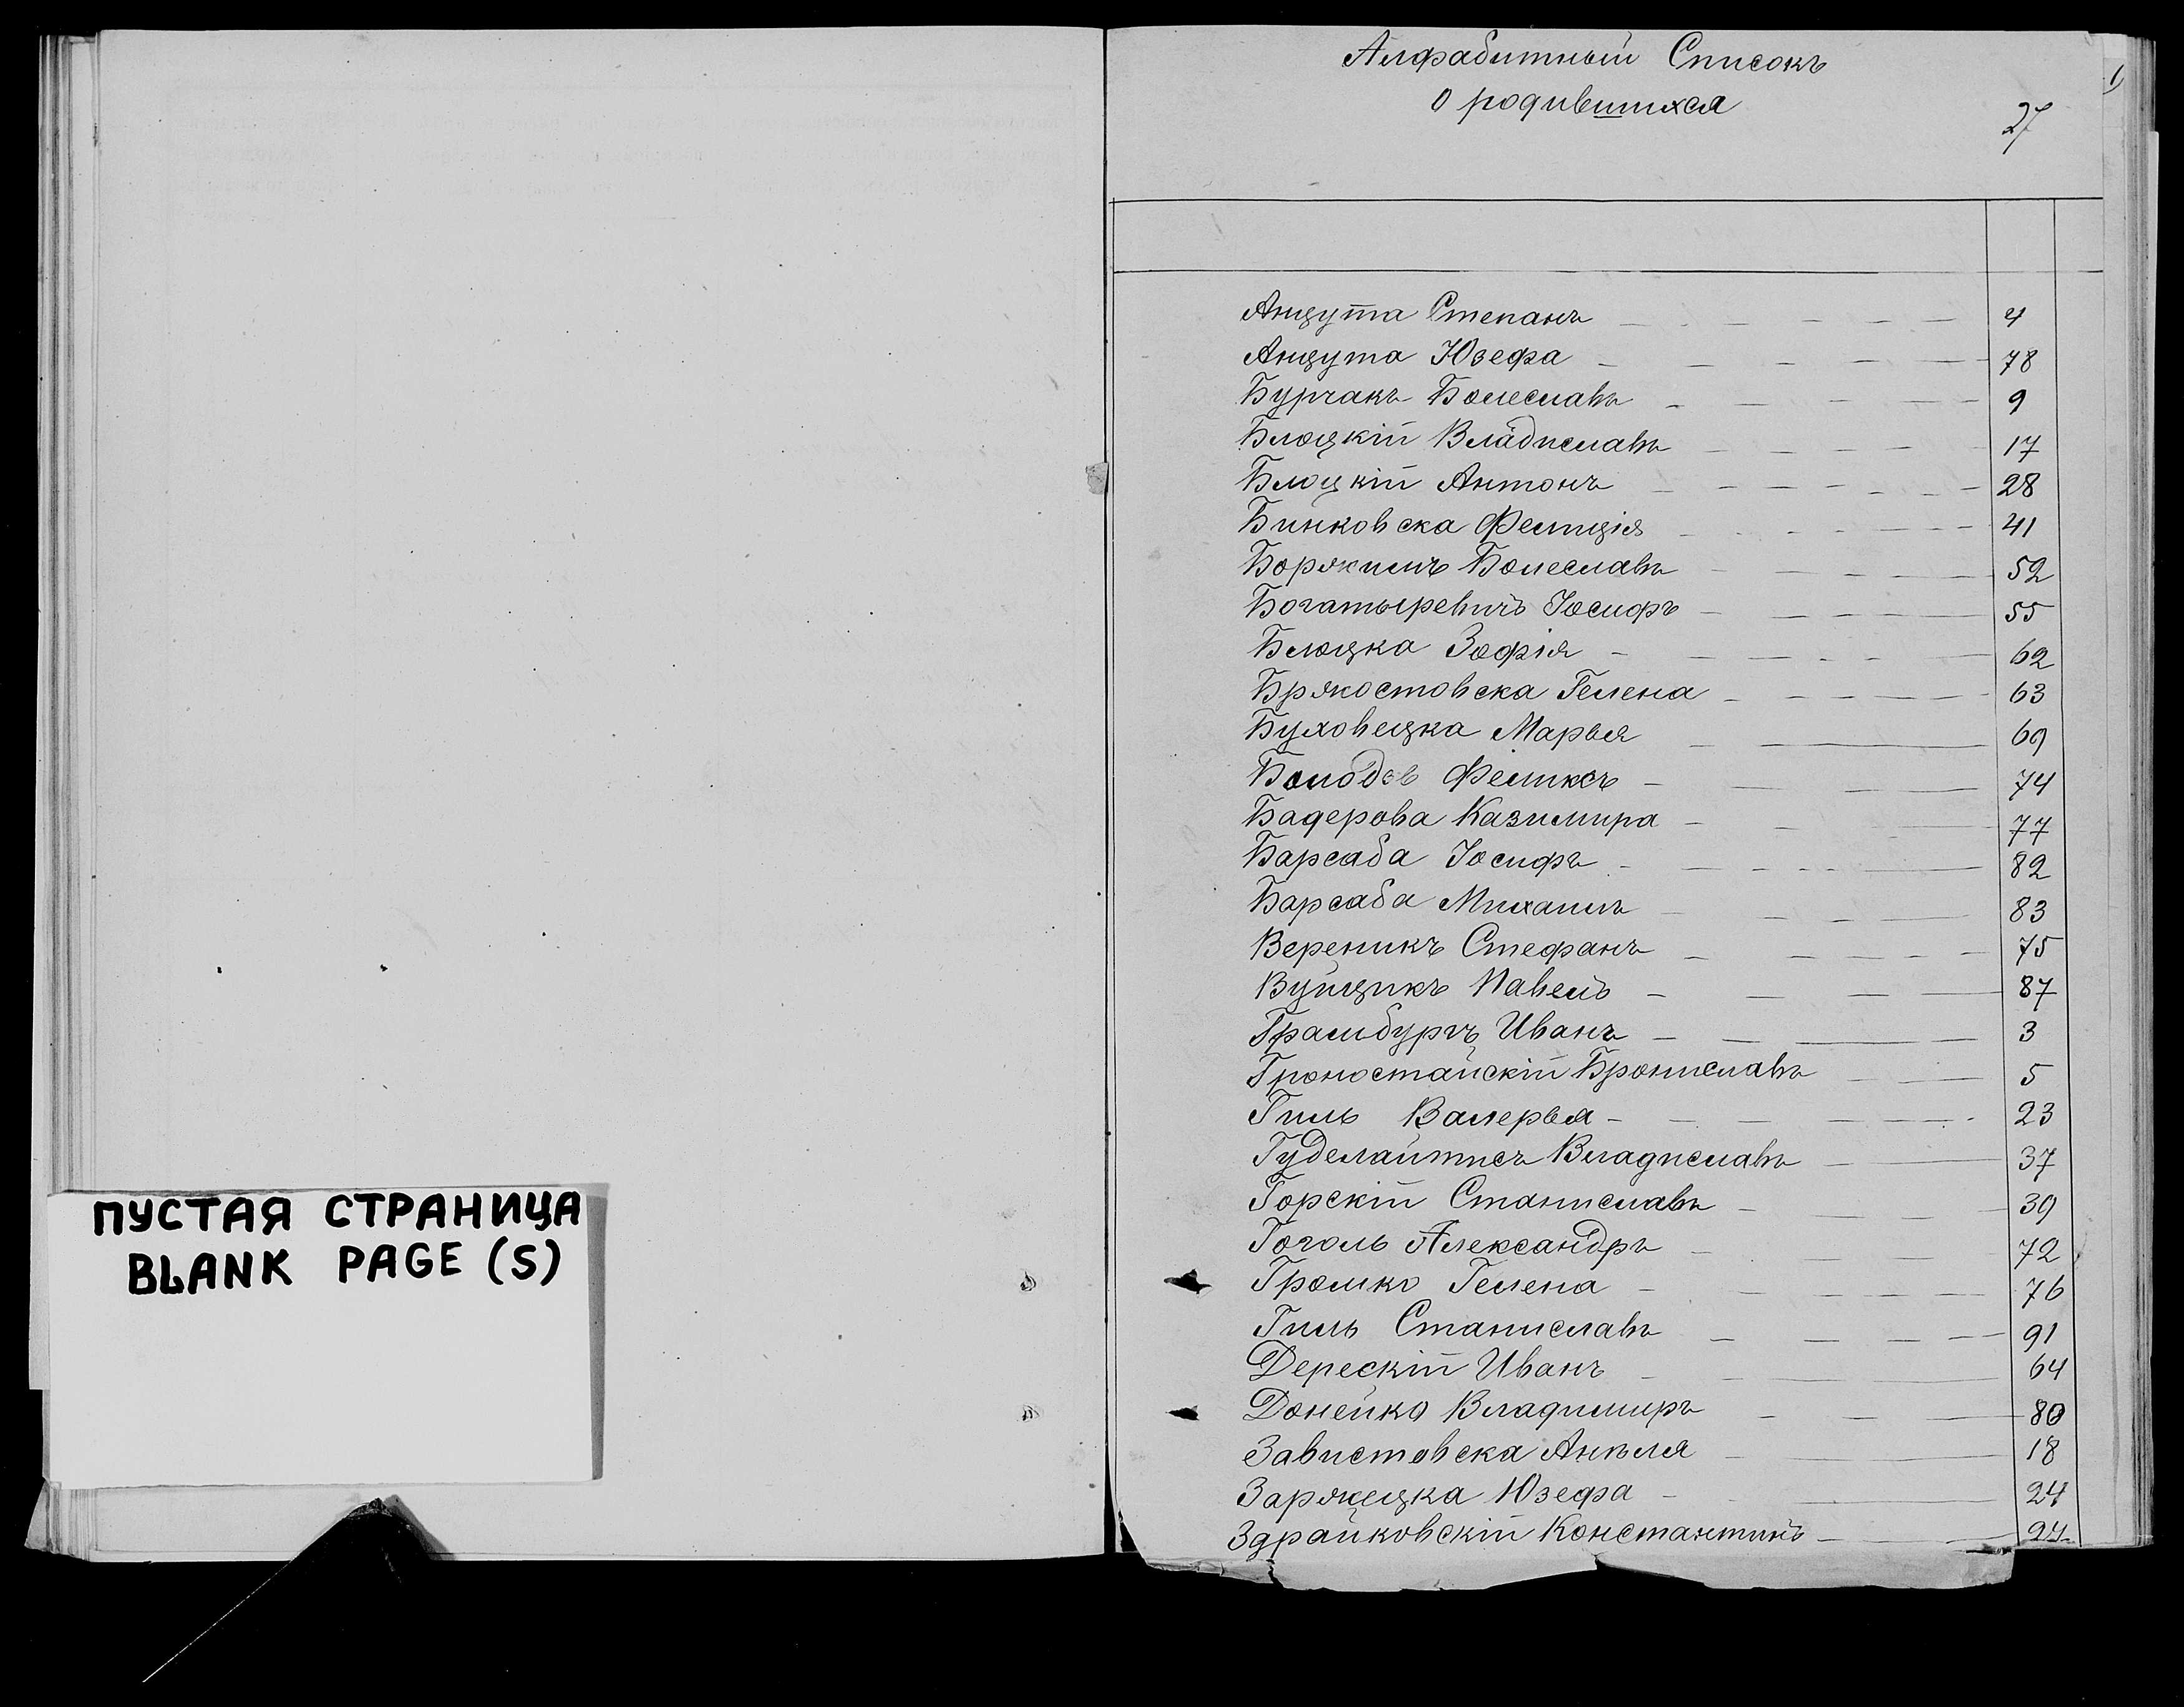 ПУСТАЯ СТРАНИЦА
BLANK PAGE (S)
Алфабитный Списокъ
о родившихся
27
Анцута Степанъ 4
Анцута Юзефа 78
Бурчакъ Болеславъ 9
Блоцкій Владиславъ 17
Блоцкій Антонъ 28
Бинковска Фелиція 41
Болеславъ 52
Богатыревичъ Іосифъ 55
Блоцка Зофія 62
Бржостовска Гелена 63
Буховецка Марья 69
Феликсъ 74
Бадерова Казимира 77
Барсаба Іосифъ 82
Барсаба Михаилъ 83
Вереникъ Стефанъ 75
Вуйцикъ Павелъ 87
Грамбургъ Иванъ 3
Гроностайскій Брониславъ 5
Гиль Валерья 23
Гуделайтисъ Владиславъ 37
Горскій Станиславъ 39
Гоголь Александръ 72
Громко Гелена 76
Гиль Станиславъ 91
Дерескій Иванъ 64
Донейко Владимиръ 80
Завистовска Анѣля 18
Заржецка Юзефа 24
Здрайковскій Константинъ